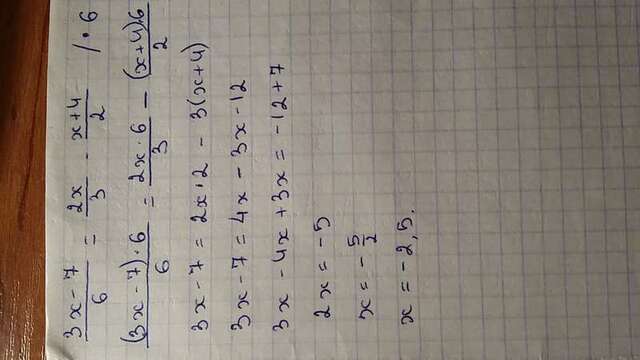 (3x - 7)/6 = 2x/3 - (x+4)/2 / · 6
(3x - 7)·6/6 = 2x·6/3 - (x+4)·6/2
3x - 7 = 2x·2 - 3(x+4)
3x - 7 = 4x - 3x - 12
3x - 4x + 3x = -12 + 7
2x = -5
x = - 5/2
x = -2,5.